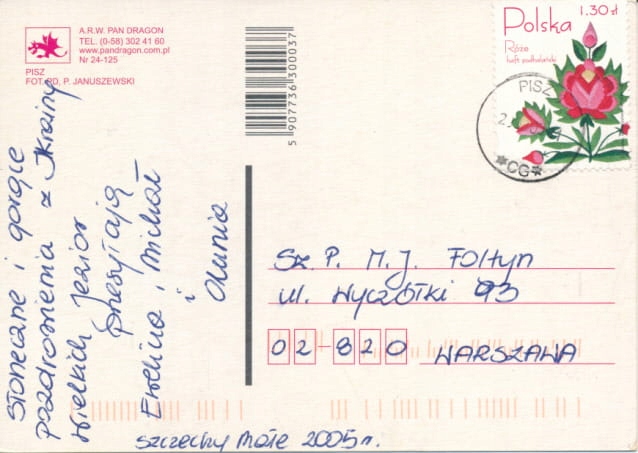 A.R.W. PAN DRAGON
TEL. (0-58) 302 41 60
www.pandragon.com.pl
Nr 24-125
PISZ
FOT. PD, P. JANUSZEWSKI
5 907736 300037
Polska 1.30 zł
Róże
haft podhalański
PISZ
2
*CG*
Słoneczne i gorące
pozdrowienia z Krainy
Wielkich Jezior
przesyłają
Ewelina, Michał
i
Olunia
Szczechy Małe 2005 r.
Sz. P. M. J. Fołtyn
ul. Wyczółki 93
02-820 WARSZAWA